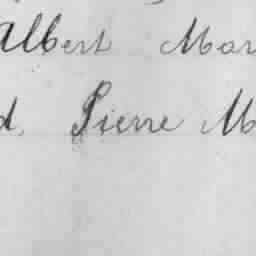 Albert Mar
d. Pierre M